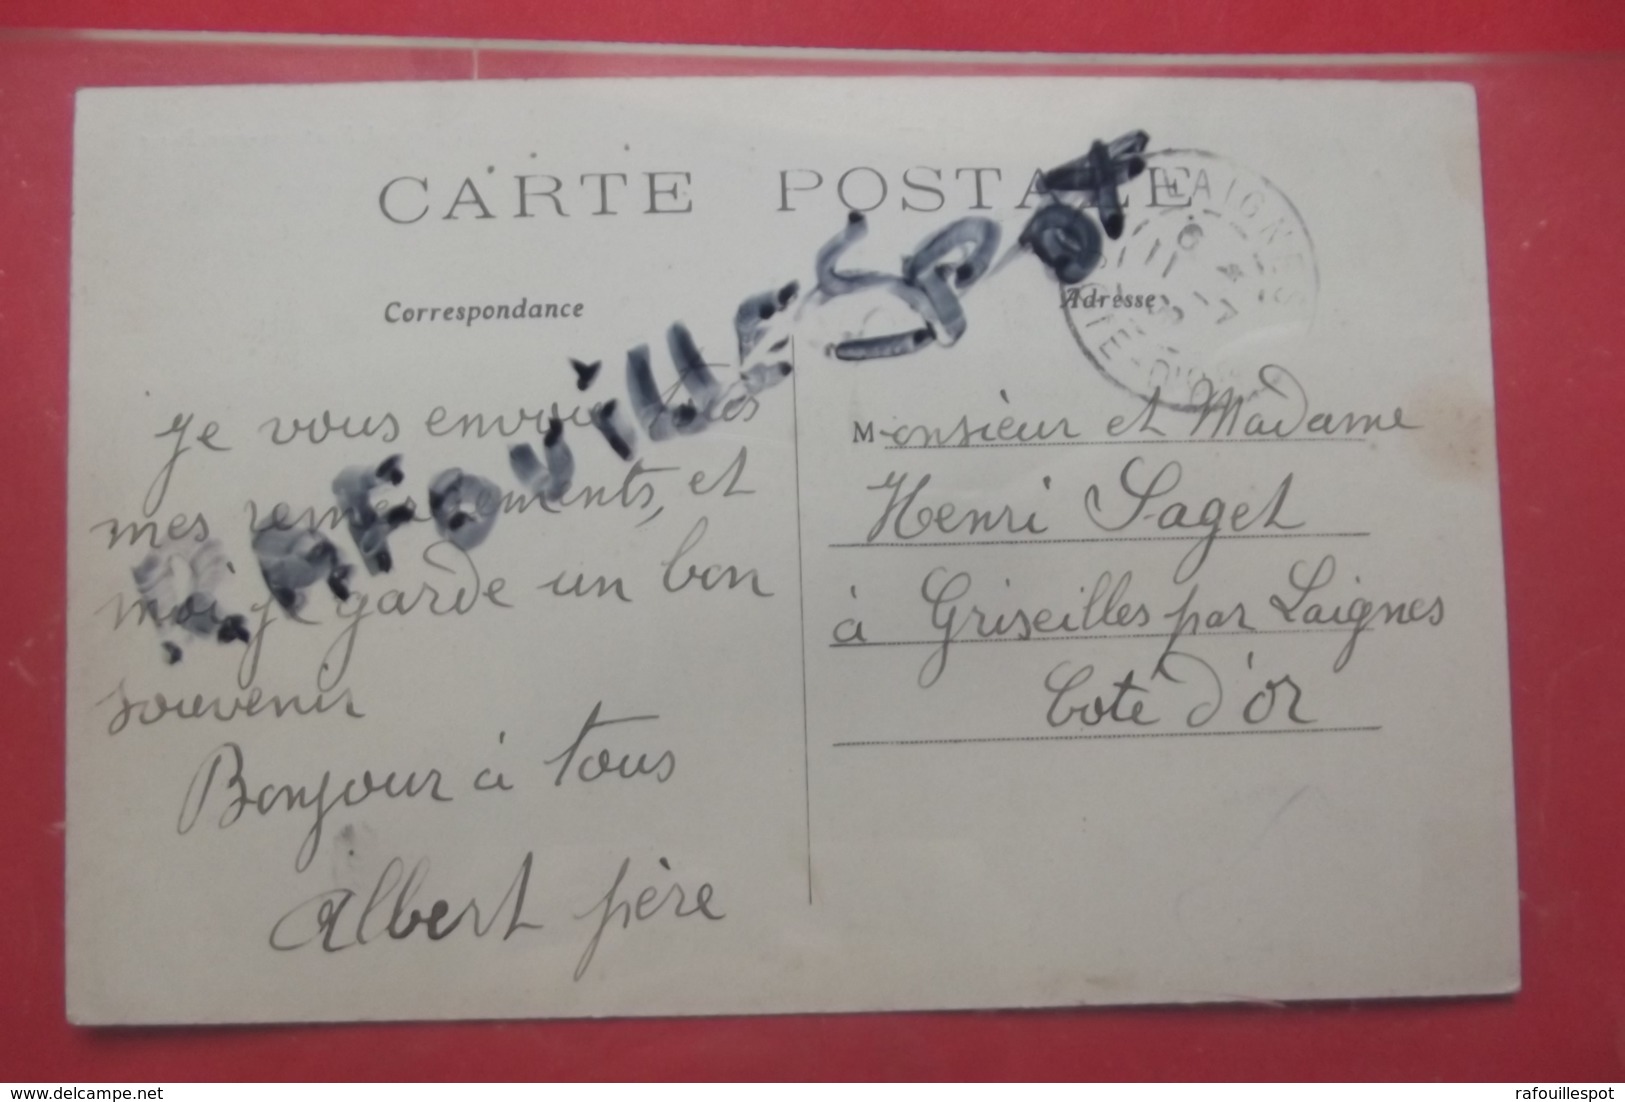 CARTE POSTALE
Correspondance
Adresse
LAIGNES
COTE-D'OR
Je vous envoie tous
mes remerciements, et
moi je garde un bon
souvenir
Bonjour à tous
Albert père
Monsieur et Madame
Henri Saget
à Griseilles par Laignes
Cote d'or
RAFOUILLESPOT
delcampe.net
rafouillespot